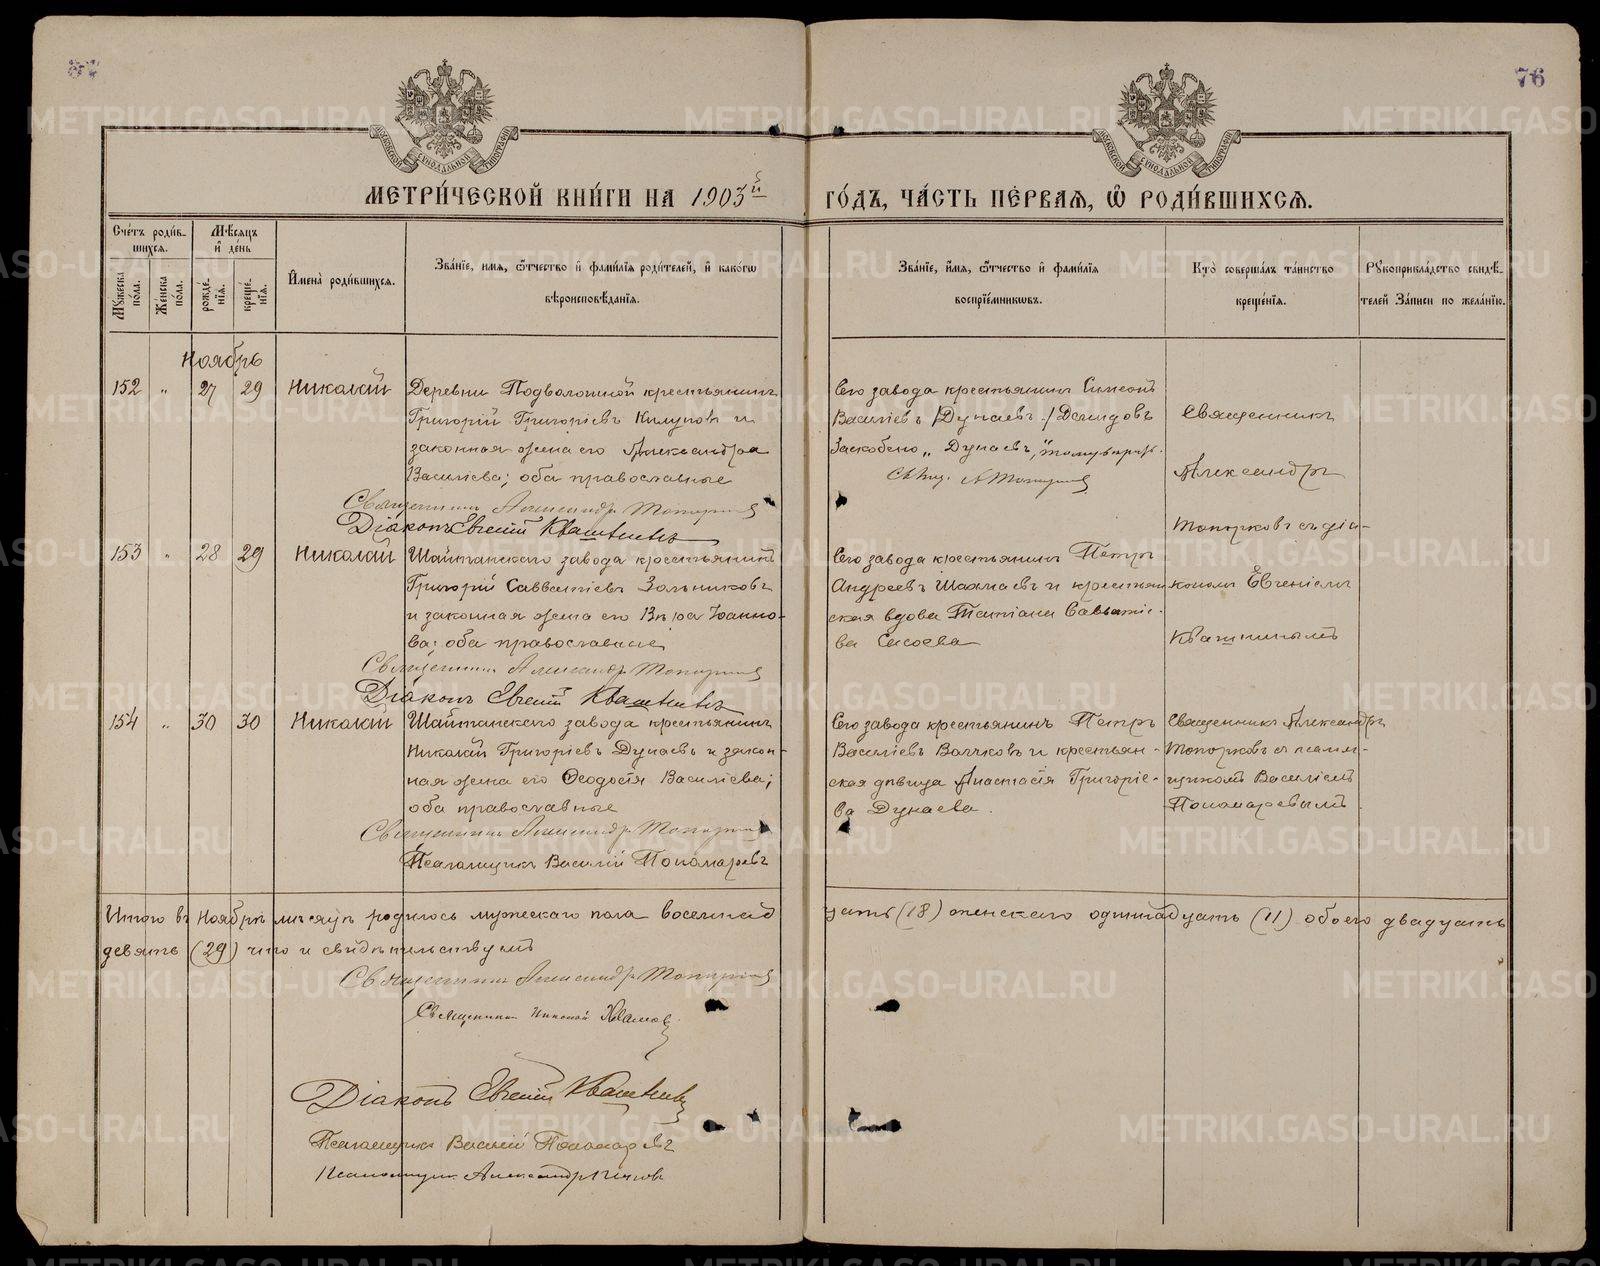 76
МОСКОВСКОЙ СѴНОДАЛЬНОЙ ТИПОГРАФІИ
МОСКОВСКОЙ СѴНОДАЛЬНОЙ ТИПОГРАФІИ
МЕТРИ́ЧЕСКОЙ КНИ́ГИ НА 1903й
ГО́ДЪ, ЧА́СТЬ ПЕ́РВАЯ, Ѽ РОДИ́ВШИХСЯ.
Сче́тъ роди́в-
шихся.
Мѣ́сяцъ
и҆ де́нь
Мꙋ́жеска по́ла.
Же́нска по́ла.
рожде́-
нїя.
креще́-
нїя.
И҆мена̀ роди́вшихся.
Зва́нїе, и́мя, ѻ҆́тчество и҆ фами́лїя роди́телей, и҆ како́гѡ
вѣроисповѣ́данїя.
Зва́нїе, и҆́мя, ѻ҆́тчество и҆ фами́лїя
воспрїе́мниковъ.
Кто̀ соверша́лъ та́инство
креще́нїя.
Рꙋкоприкла́дство свидѣ́-
телей За́писи по жела́нїю.
Ноябрь
152 „ 27 29 Николай Деревни Подволошной крестьянинъ
Григорій Григоріевъ и
законная жена его Александра
Васильева; оба православные
Священникъ Александръ Топорковъ
Діаконъ Евгеній Квашнинъ
Сего завода крестьянинъ Симеонъ
Васильевъ /Дунаевъ/ Демидовъ
Заскоблено „Дунаевъ"
Свящ. А Топорковъ
Священникъ
Александръ
Топорковъ съ діа-
кономъ Евгеніемъ
Квашнинымъ
153 „ 28 29 Николай Шайтанскаго завода крестьянинъ
Григорій Савватіевъ Зольниковъ
и законная жена его Вѣра Іоанно-
ва; оба православные
Священникъ Александръ Топорковъ
Діаконъ Евгеній Квашнинъ
Сего завода крестьянинъ Петръ
Андреевъ Шахмаевъ и крестьян
ская вдова Татіана Савватіе-
ва Сысоева
154 „ 30 30 Николай Шайтанскаго завода крестьянинъ
Николай Григоріевъ Дунаевъ и закон-
ная жена его Ѳеодосія Васильева;
оба православные
Священникъ Александръ Топорковъ
Псаломщикъ Василій Пономаревъ
Сего завода крестьянинъ Петръ
Васильевъ Волчковъ и крестьян-
ская дѣвица Анастасія Григоріе-
ва Дунаева.
Священникъ Александръ
Топорковъ съ псалом-
щикомъ Василіемъ
Пономаревымъ
Итого въ Ноябрѣ мѣсяцѣ родилось мужескаго пола восемнад
цать (18) женскаго одиннадцать (11) обоего двадцать
девять (29) что и свидѣтельствуемъ
Священникъ Александръ Топорковъ
Священникъ Николай
Діаконъ Евгеній Квашнинъ
Псаломщикъ Василій Пономаревъ
Псаломщикъ Александръ
METRIKI.GASO-URAL.RU